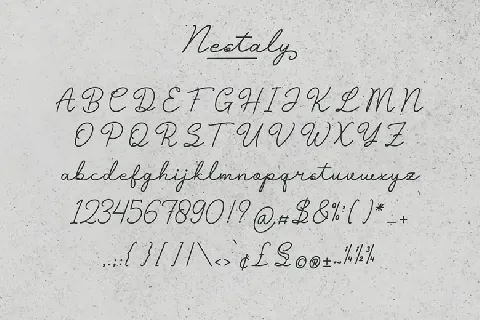 Nestaly
A B C D E F G H I J K L M N
O P Q R S T U V W X Y Z
abcdefghijklmnopqrstuvwxyz
1234567890!? @ # $ & % ' ( ) * _ +
,.;: { } [ ] | \ < > ¢ £ § © ® ± ~ ¼ ½ ¾